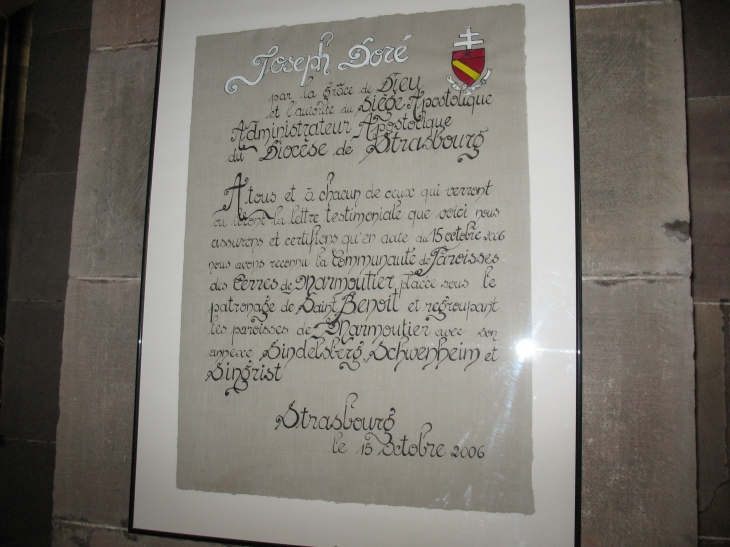 Joseph Doré
par la grâce de Dieu
et l'autorité du Siège Apostolique
Administrateur Apostolique
du Diocèse de Strasbourg
A tous et à chacun de ceux qui verront
ou liront la lettre testimoniale que voici nous
assurons et certifions qu'en date du 15 octobre 2006
nous avons reconnu la Communauté de Paroisses
des Terres de Marmoutier placée sous le
patronage de Saint Benoît et regroupant
les paroisses de Marmoutier avec son
annexe Sindelsberg, Schwenheim et
Singrist
Strasbourg
le 15 Octobre 2006